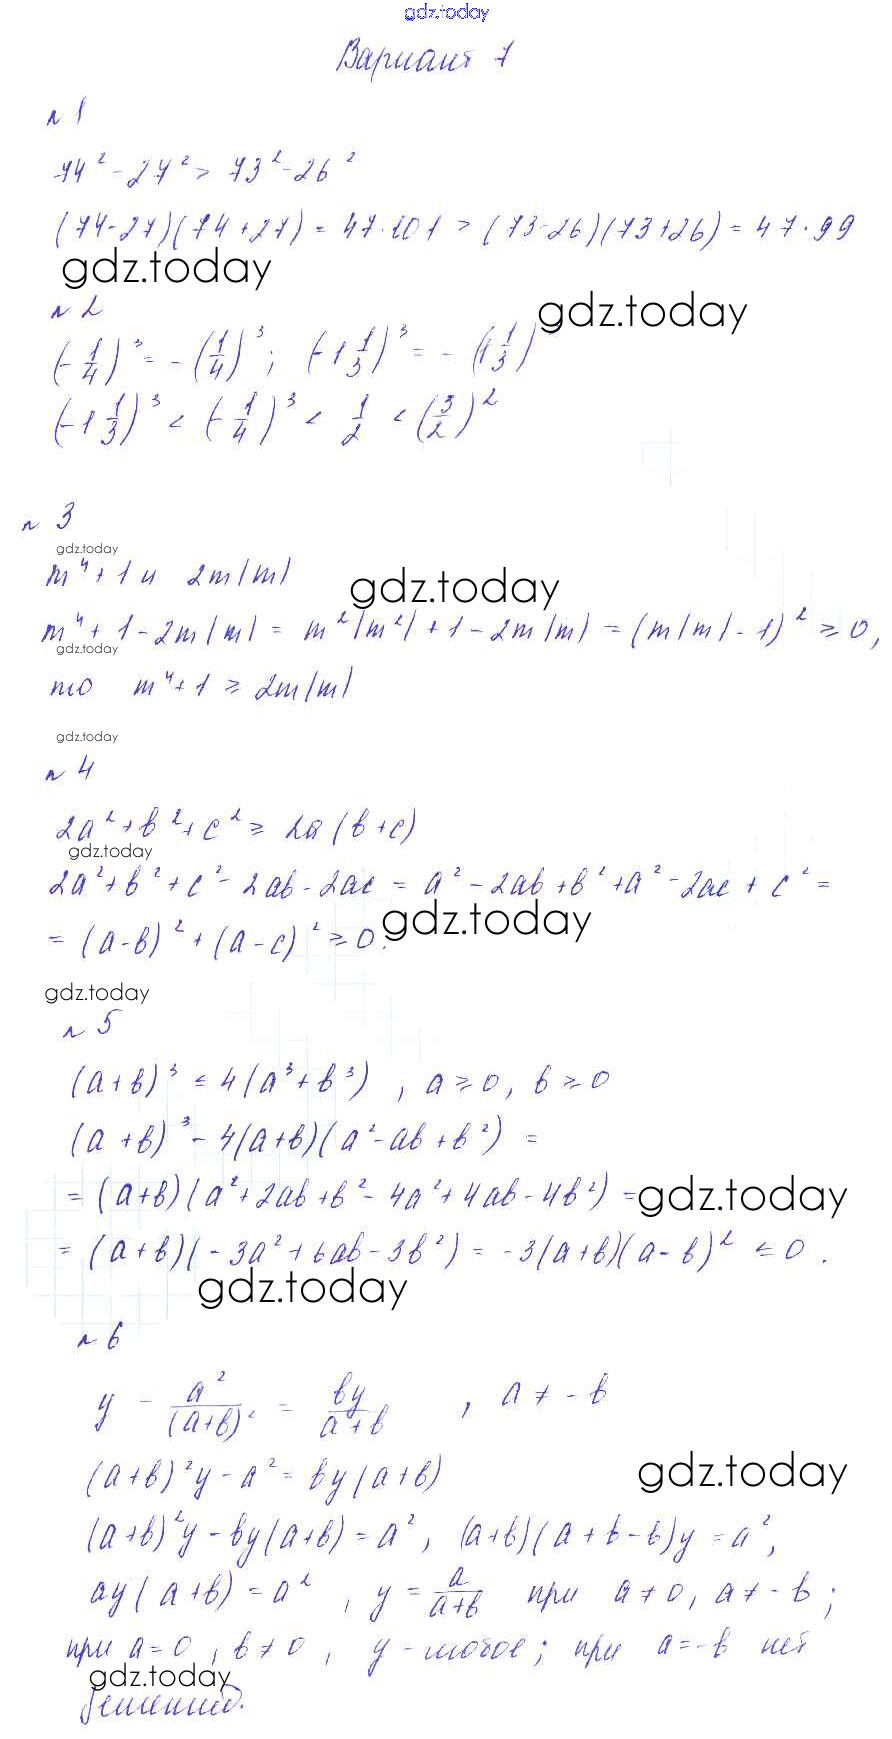 gdz.today
Вариант 7
№ 1
74² - 27² > 73² - 26²
(74-27)(74+27) = 47·101 > (73-26)(73+26) = 47·99
gdz.today
gdz.today
№ 2
(-1/4)³ = -(1/4)³; (-1 1/3)³ = -(1 1/3)
(-1 1/3)³ < (-1/4)³ < 1/2 < (3/2)²
№ 3
gdz.today
m⁴ + 1 и 2m|m|
gdz.today
m⁴ + 1 - 2m|m| = m²|m²| + 1 - 2m|m| = (m|m| - 1)² ≥ 0,
gdz.today
то m⁴ + 1 ≥ 2m|m|
gdz.today
№ 4
2a² + b² + c² ≥ 2a(b+c)
gdz.today
2a² + b² + c² - 2ab - 2ac = a² - 2ab + b² + a² - 2ac + c² =
gdz.today
= (a-b)² + (a-c)² ≥ 0.
gdz.today
№ 5
(a+b)³ ≤ 4(a³+b³), a ≥ 0, b ≥ 0
(a+b)³ - 4(a+b)(a² - ab + b²) =
= (a+b)(a² + 2ab + b² - 4a² + 4ab - 4b²) =
gdz.today
= (a+b)(-3a² + 6ab - 3b²) = -3(a+b)(a-b)² ≤ 0.
gdz.today
№ 6
y - a²/(a+b)² = by/(a+b), a ≠ -b
(a+b)²y - a² = by(a+b)
gdz.today
(a+b)²y - by(a+b) = a², (a+b)(a+b-b)y = a²,
ay(a+b) = a², y = a/(a+b) при a ≠ 0, a ≠ -b;
при a = 0, b ≠ 0, y - любое; при a = -b нет
gdz.today
решений.